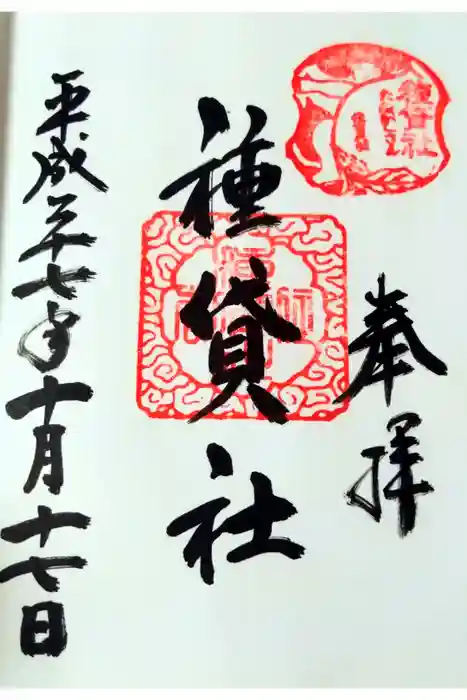 奉拝
種貸社
平成二十七年十月十七日